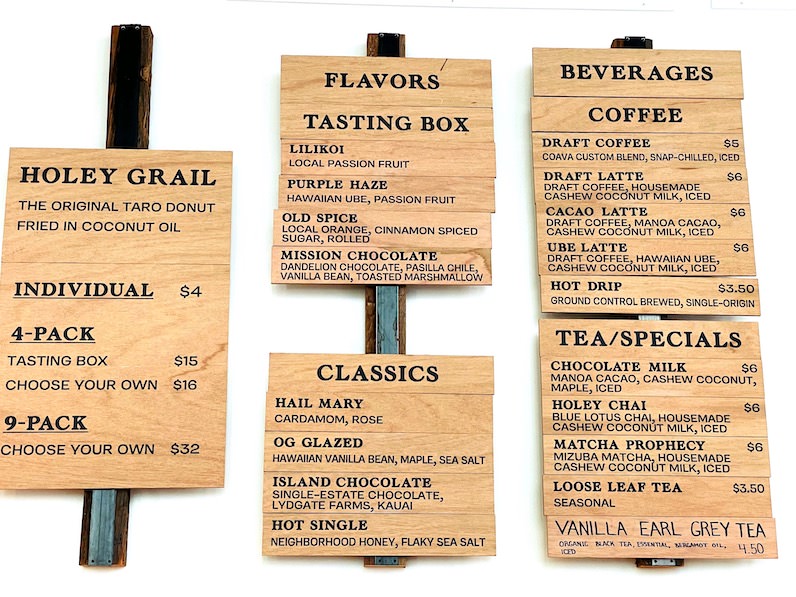 HOLEY GRAIL
THE ORIGINAL TARO DONUT
FRIED IN COCONUT OIL
INDIVIDUAL $4
4-PACK
TASTING BOX $15
CHOOSE YOUR OWN $16
9-PACK
CHOOSE YOUR OWN $32
FLAVORS
TASTING BOX
LILIKOI
LOCAL PASSION FRUIT
PURPLE HAZE
HAWAIIAN UBE, PASSION FRUIT
OLD SPICE
LOCAL ORANGE, CINNAMON SPICED
SUGAR, ROLLED
MISSION CHOCOLATE
DANDELION CHOCOLATE, PASILLA CHILE,
VANILLA BEAN, TOASTED MARSHMALLOW
CLASSICS
HAIL MARY
CARDAMOM, ROSE
OG GLAZED
HAWAIIAN VANILLA BEAN, MAPLE, SEA SALT
ISLAND CHOCOLATE
SINGLE-ESTATE CHOCOLATE,
LYDGATE FARMS, KAUAI
HOT SINGLE
NEIGHBORHOOD HONEY, FLAKY SEA SALT
BEVERAGES
COFFEE
DRAFT COFFEE $5
COAVA CUSTOM BLEND, SNAP-CHILLED, ICED
DRAFT LATTE $6
DRAFT COFFEE, HOUSEMADE
CASHEW COCONUT MILK, ICED
CACAO LATTE $6
DRAFT COFFEE, MANOA CACAO,
CASHEW COCONUT MILK, ICED
UBE LATTE $6
DRAFT COFFEE, HAWAIIAN UBE,
CASHEW COCONUT MILK, ICED
HOT DRIP $3.50
GROUND CONTROL BREWED, SINGLE-ORIGIN
TEA/SPECIALS
CHOCOLATE MILK $6
MANOA CACAO, CASHEW COCONUT,
MAPLE, ICED
HOLEY CHAI $6
BLUE LOTUS CHAI, HOUSEMADE
CASHEW COCONUT MILK, ICED
MATCHA PROPHECY $6
MIZUBA MATCHA, HOUSEMADE
CASHEW COCONUT MILK, ICED
LOOSE LEAF TEA $3.50
SEASONAL
VANILLA EARL GREY TEA
ORGANIC BLACK TEA, ESSENTIAL, BERGAMOT OIL,
ICED 4.50